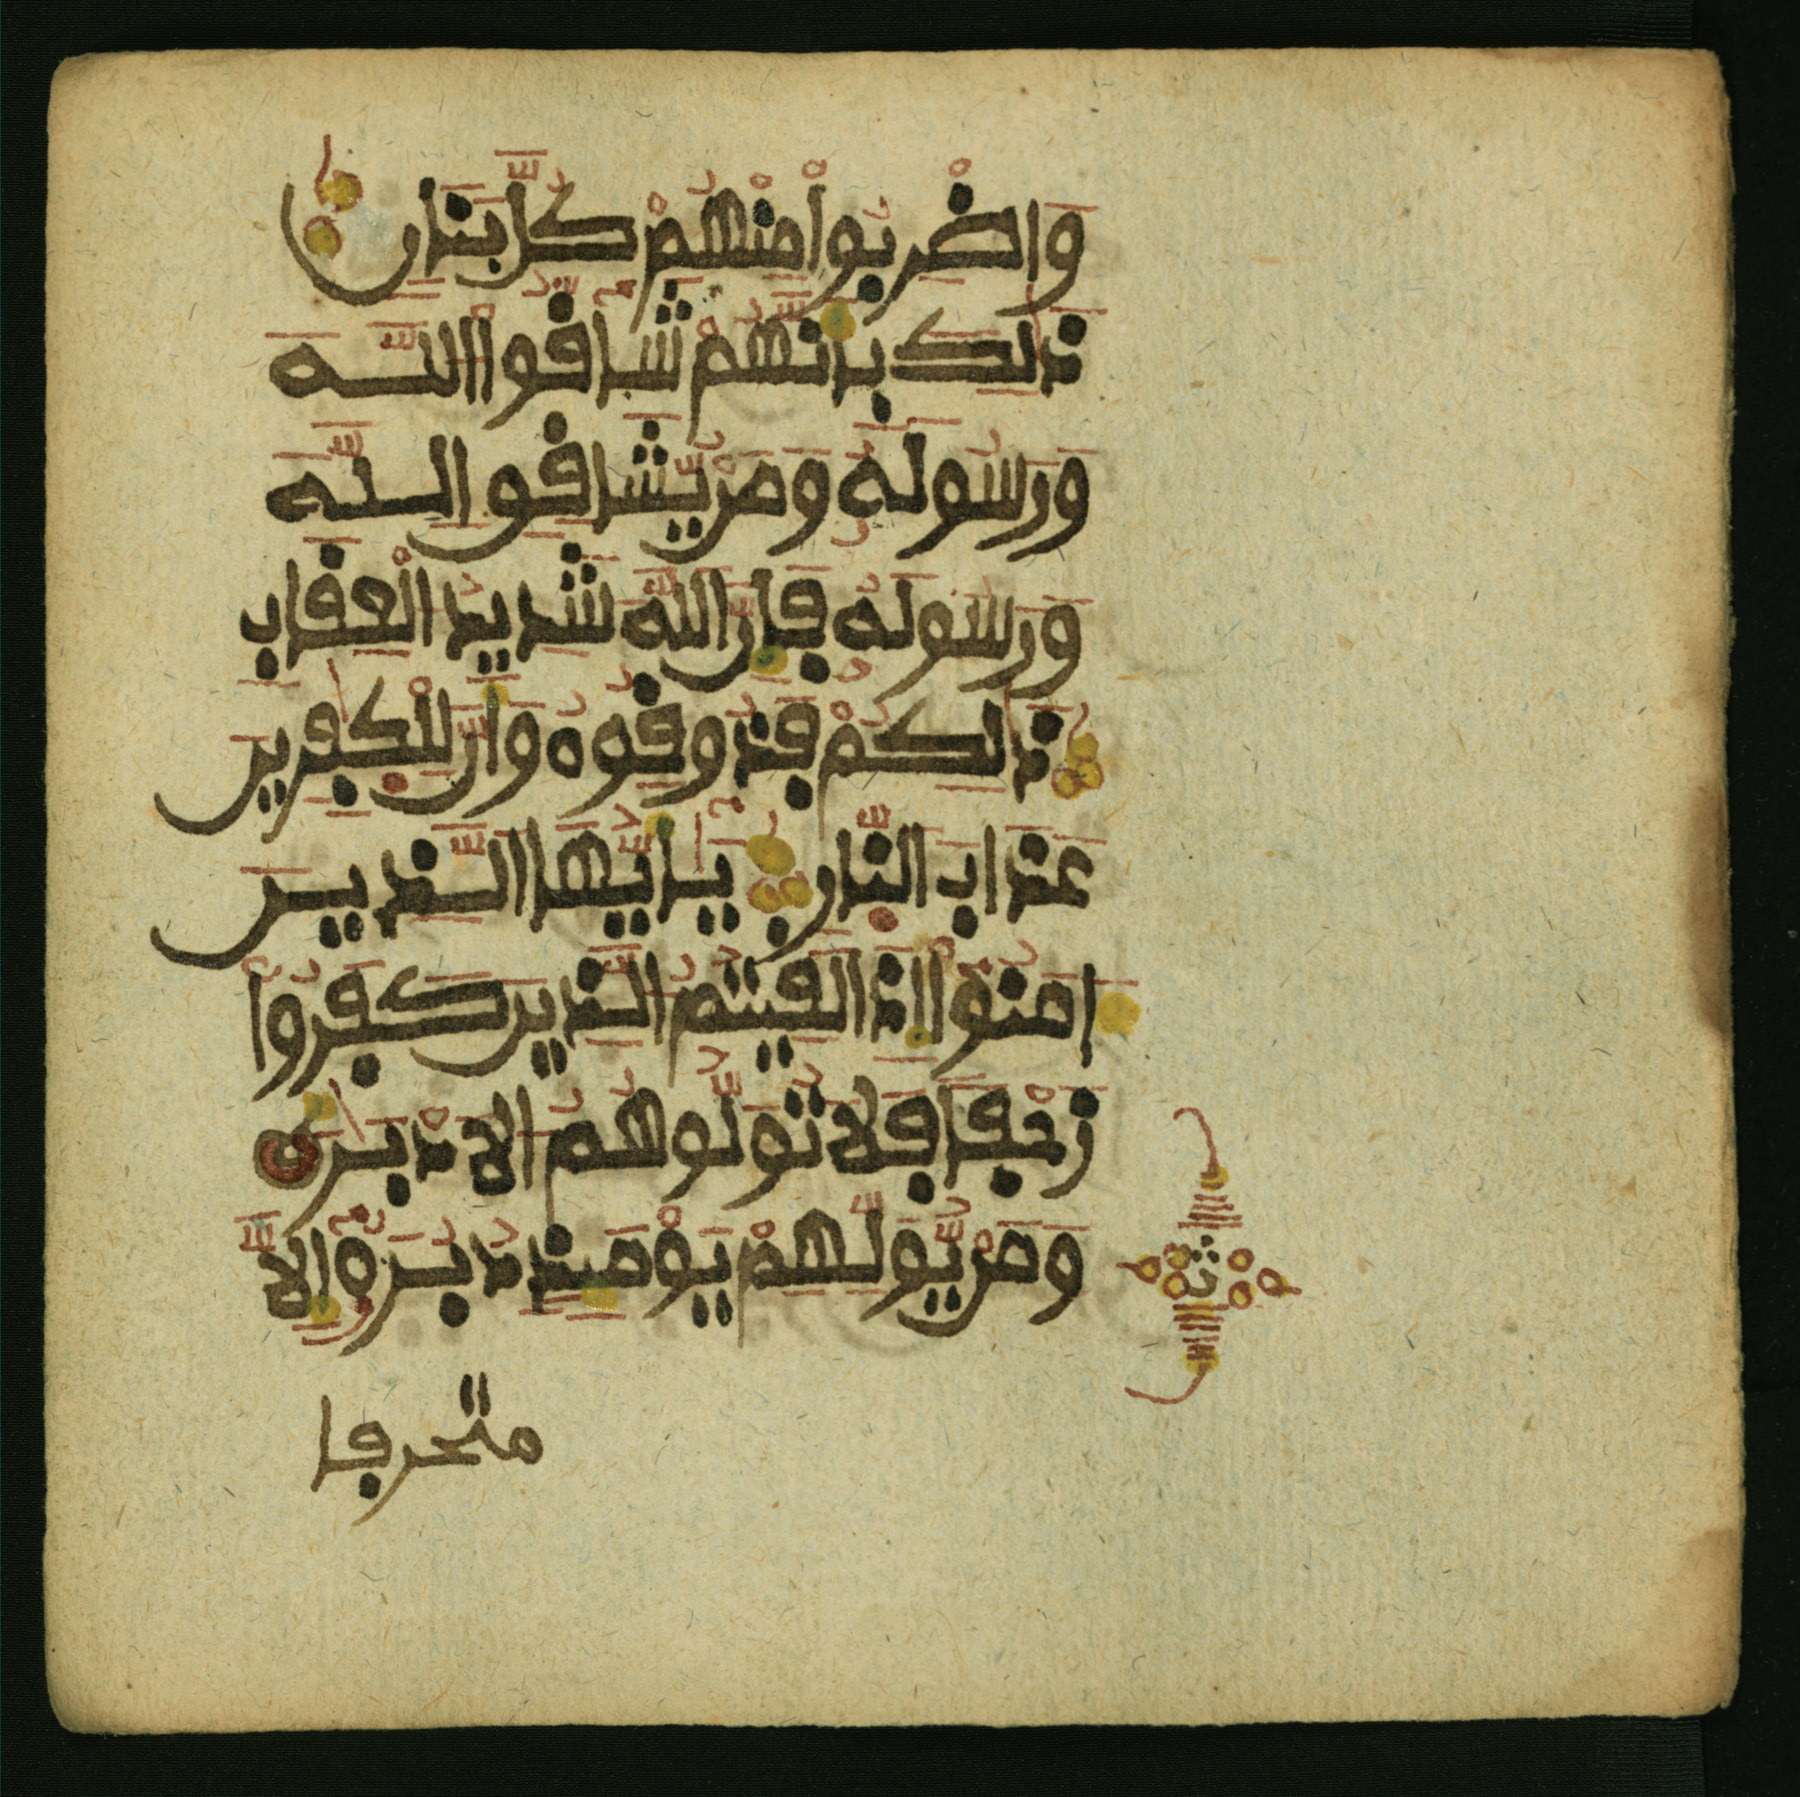 وَاضْرِبُواْ مِنْهُمْ كُلَّ بَنَانٍ
ذَٰلِكَ بِأَنَّهُمْ شَآقُّواْ اللَّهَ
وَرَسُولَهُ وَمَنْ يُّشَاقِقِ اللَّهَ
وَرَسُولَهُ فَإِنَّ اللَّهَ شَدِيدُ الْعِقَابِ
ذَٰلِكُمْ فَذُوقُوهُ وَأَنَّ لِلْكَٰفِرِينَ
عَذَابَ النَّارِ يَٰٓأَيُّهَا الَّذِينَ
ءَامَنُوٓاْ إِذَا لَقِيتُمُ الَّذِينَ كَفَرُواْ
زَحْفًا فَلَا تُوَلُّوهُمُ الْأَدْبَٰرَ
وَمَنْ يُّوَلِّهِمْ يَوْمَئِذٍ دُبُرَهُٓ إِلَّا
متحرفا
ث